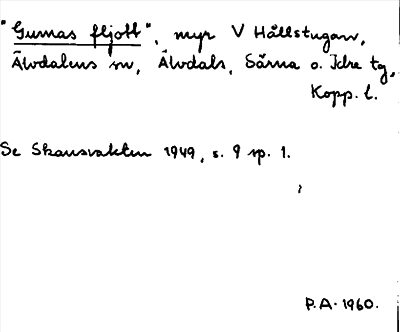 "Gumas fljott", myr V Hållstugan,
Älvdalens sn, Älvdals, Särna o. Idre tg,
Kopp. l.
Se Skansvakten 1949, s. 9 sp. 1.
P.A. 1960.